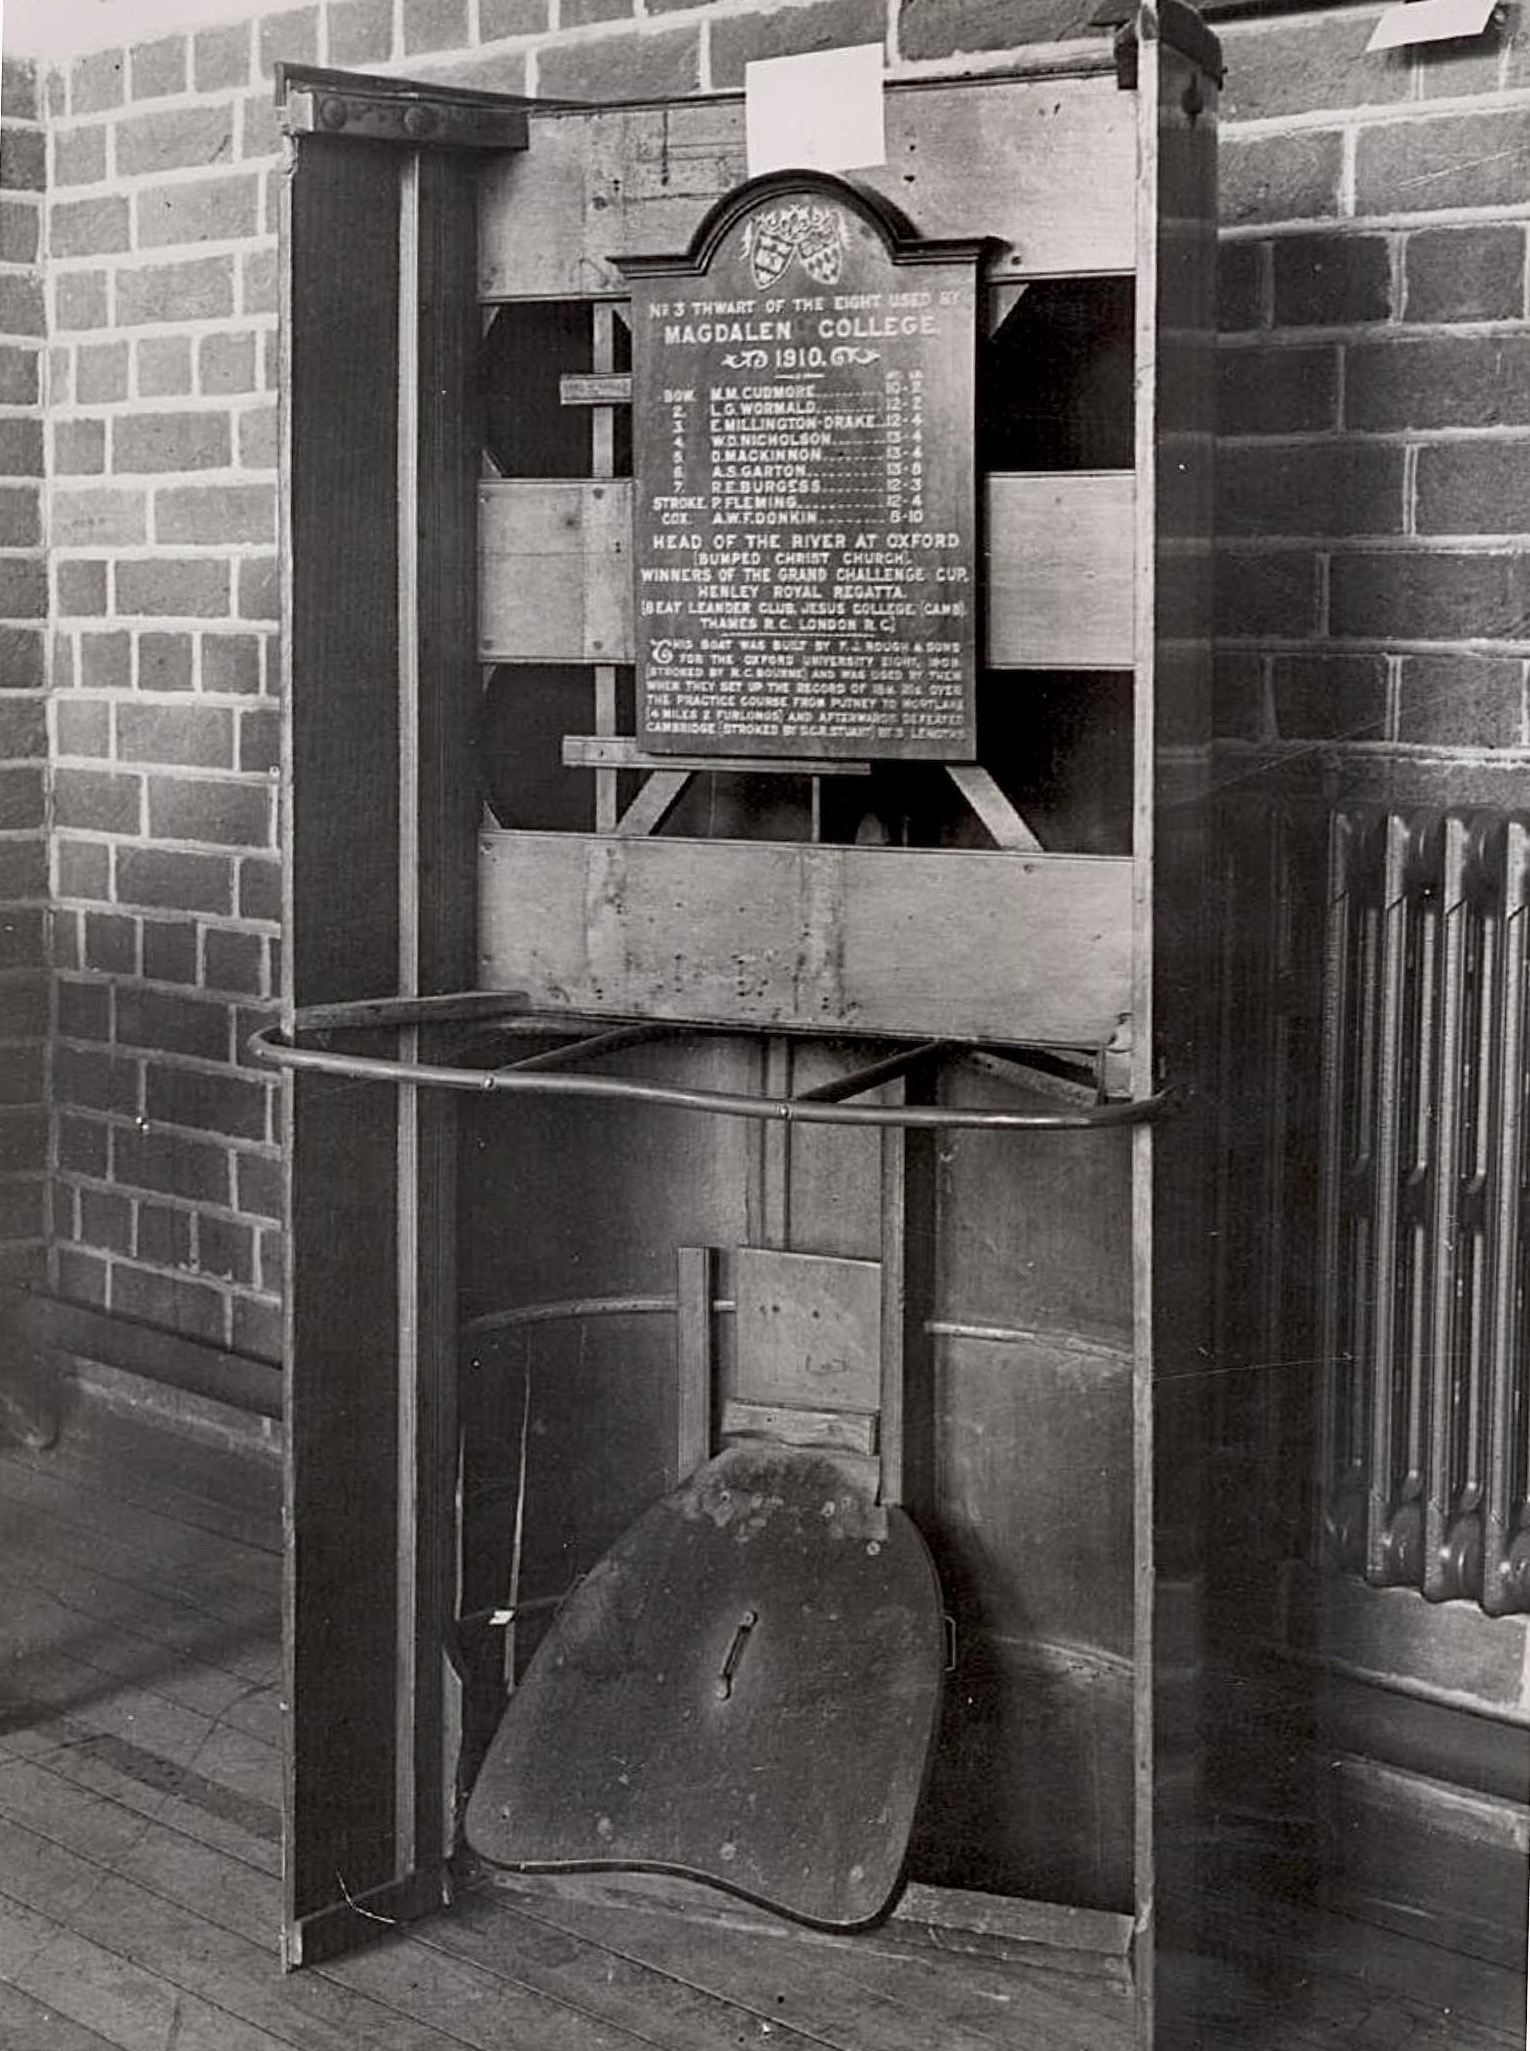 No 3 THWART OF THE EIGHT USED BY
MAGDALEN COLLEGE.
1910.
ST. LB.
BOW. M.M. CUDMORE........10-2
2. L.G. WORMALD........12-2
3. E. MILLINGTON-DRAKE..12-4
4. W.D. NICHOLSON.......13-4
5 D. MACKINNON.........13-4
6 A.S. GARTON..........13-8
7. R.E. BURGESS.........12-3
STROKE. P. FLEMING..........12-4
COX. A.W.F. DONKIN........8-10
HEAD OF THE RIVER AT OXFORD
[BUMPED CHRIST CHURCH].
WINNERS OF THE GRAND CHALLENGE CUP,
HENLEY ROYAL REGATTA.
[BEAT LEANDER CLUB, JESUS COLLEGE, [CAMB],
THAMES R.C. LONDON R.C.]
THIS BOAT WAS BUILT BY F.J. ROUGH & SONS
FOR THE OXFORD UNIVERSITY EIGHT, 1909.
[STROKED BY R.C. BOURNE] AND WAS USED BY THEM
WHEN THEY SET UP THE RECORD OF OVER
THE PRACTICE COURSE FROM PUTNEY TO MORTLAKE
[4 MILES 2 FURLONGS] AND AFTERWARDS DEFEATED
CAMBRIDGE [STROKED BY D.C.R. STUART] BY 3 LENGTHS